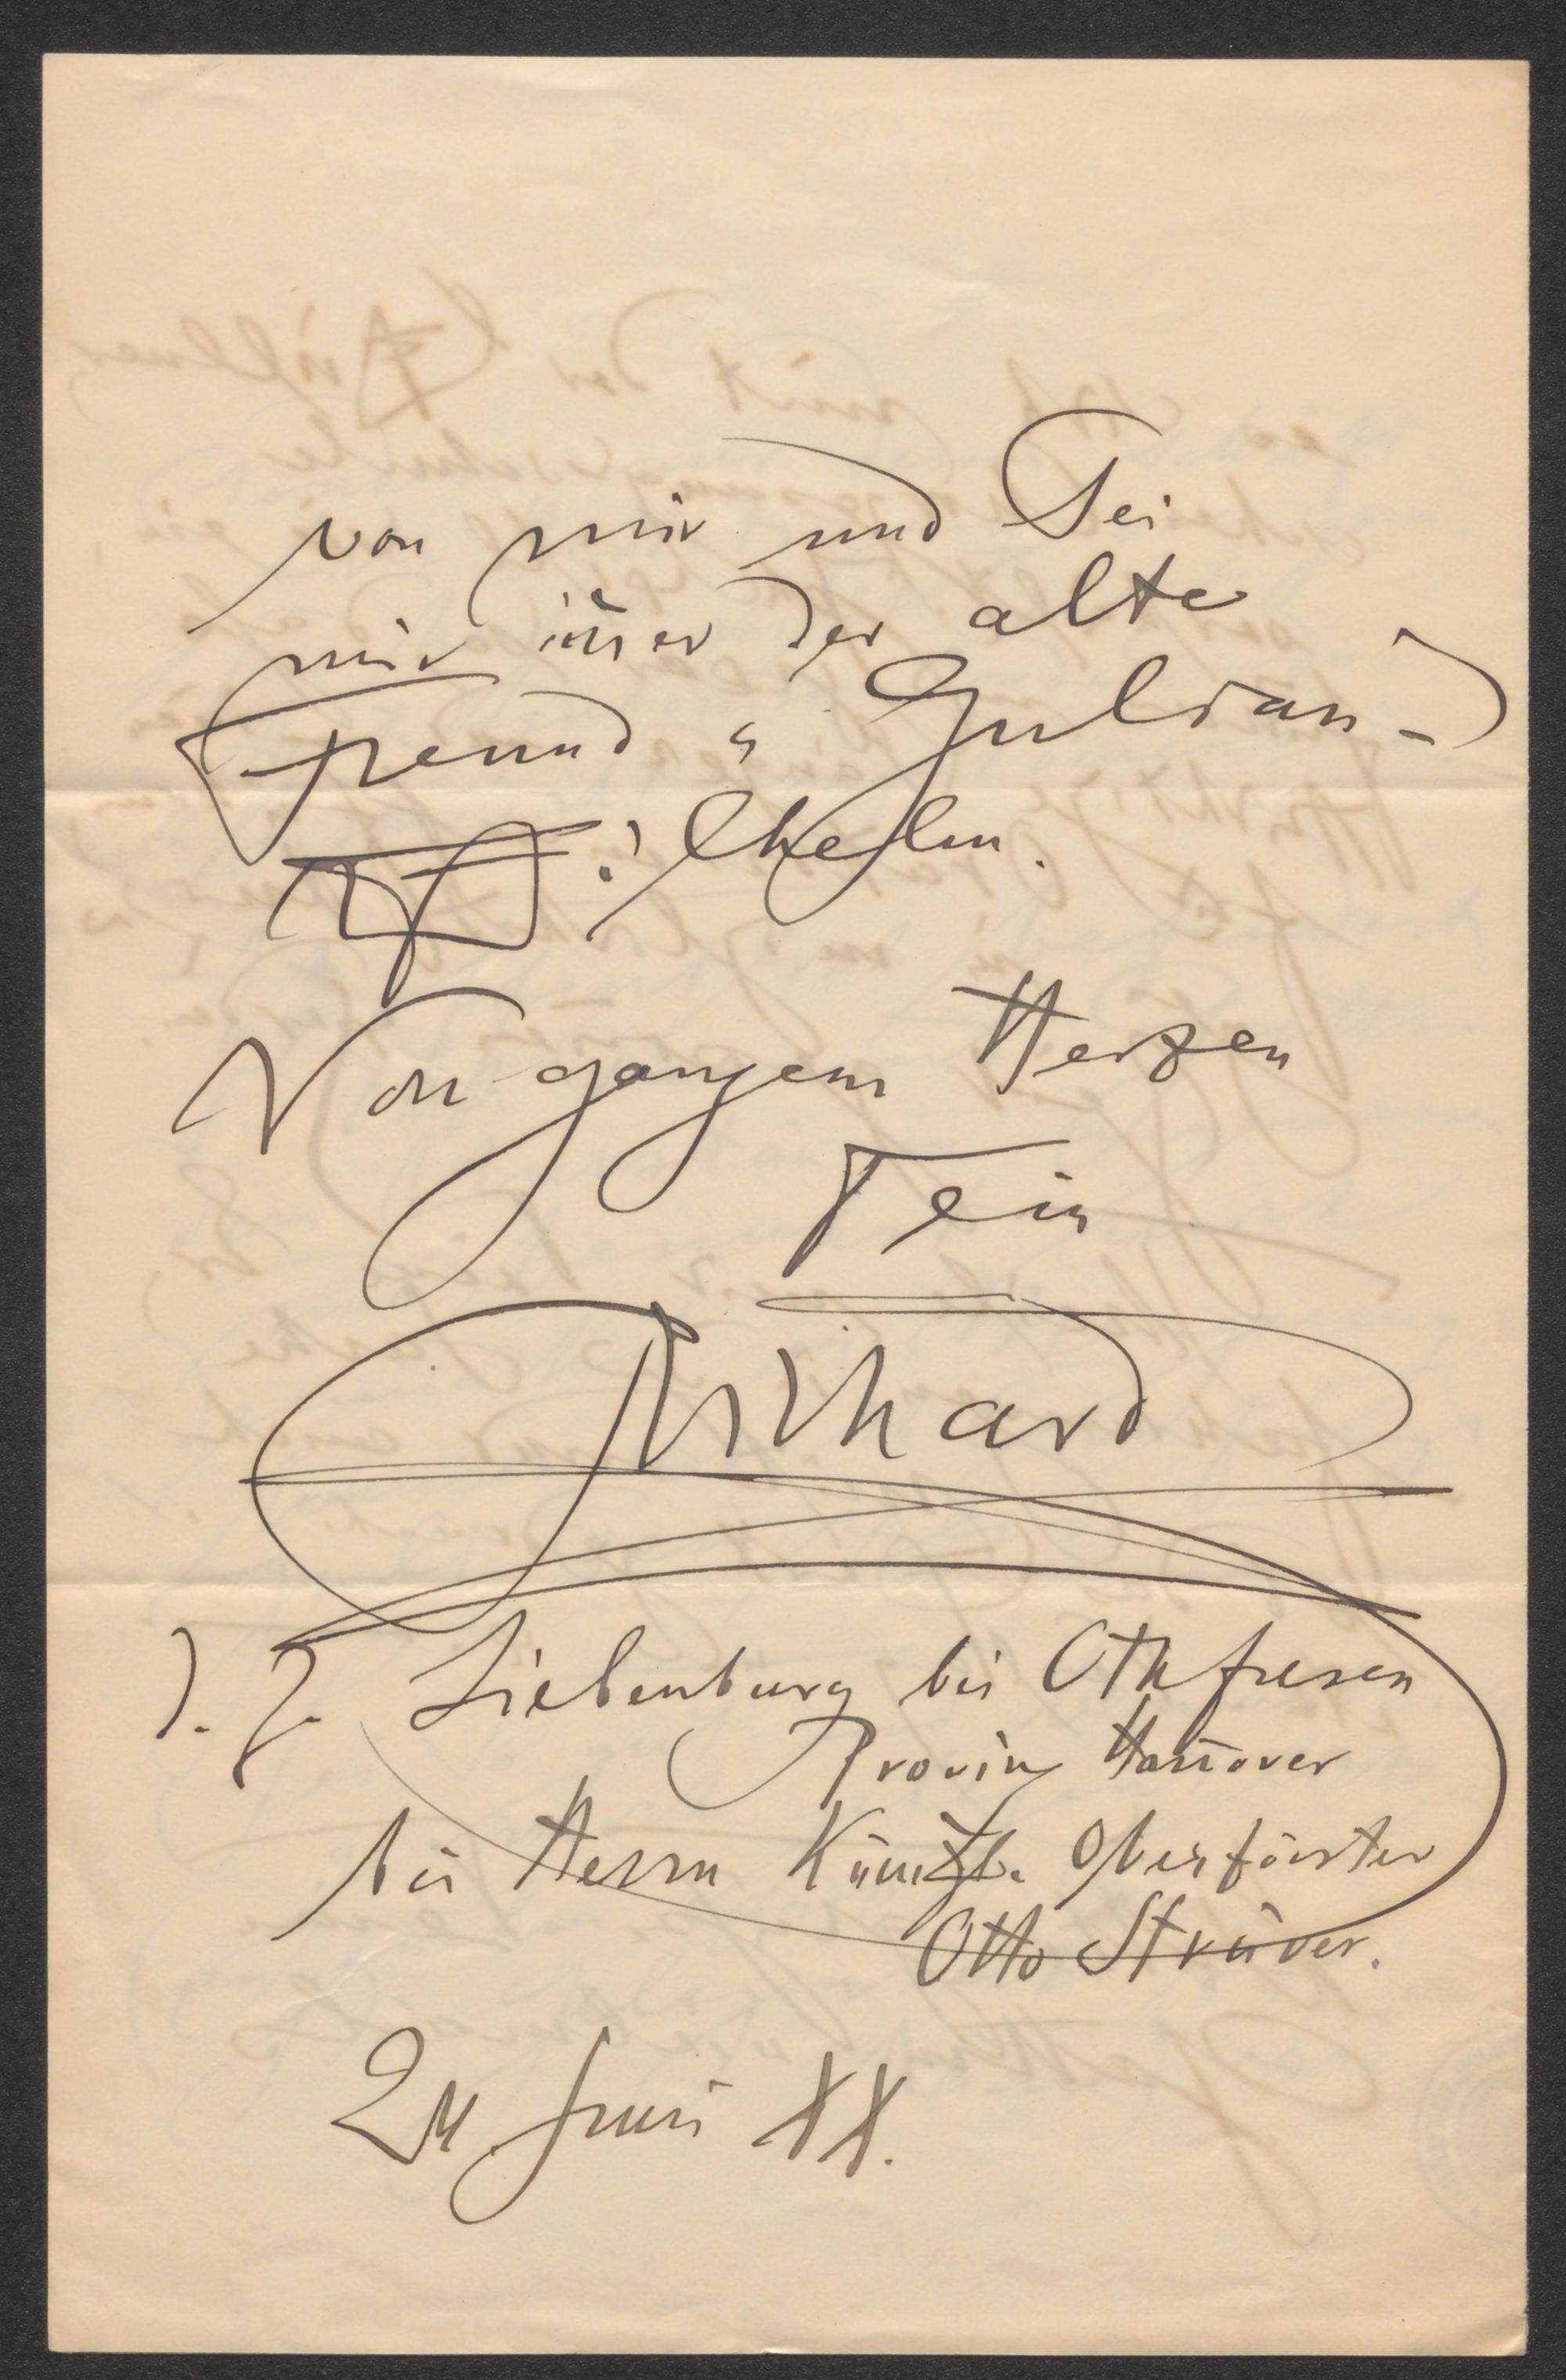 von mir und Sei
mir im̄er der alte
Freund u Guldan-
Wilhelm.
Von ganzem Herzen
Dein
Richard
z. Z. Liebenburg bei Othfresen
Provinz Han̄over
bei Herrn Königl. Oberförster
Otto Strüver.
24 Juni XX.